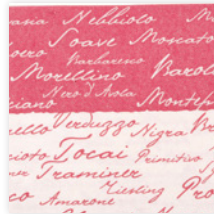 Nebbiolo
Soave Moscato
Barbaresco
Morellino Barol
Nero d'Avola
ciano Montepu
ello Verduzzo Nigra
cioto Tocai Primitivo
Traminer
Riesling
Amarone